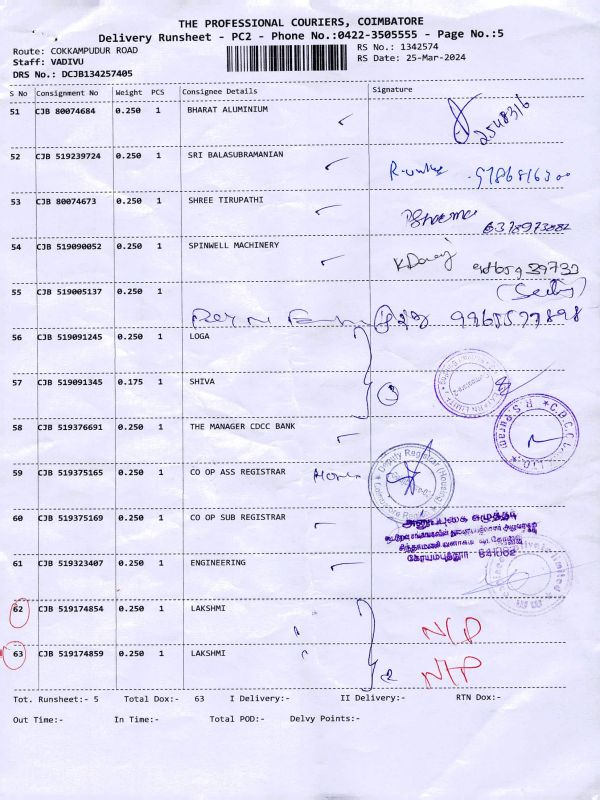 THE PROFESSIONAL COURIERS, COIMBATORE
Delivery Runsheet - PC2 - Phone No.:0422-3505555 - Page No.:5
Route: COKKAMPUDUR ROAD RS No.: 1342574
Staff: VADIVU RS Date: 25-Mar-2024
DRS No.: DCJB134257405
S No Consignment No Weight PCS Consignee Details Signature
51 CJB 80074684 0.250 1 BHARAT ALUMINIUM
2548316
52 CJB 519239724 0.250 1 SRI BALASUBRAMANIAN
53 CJB 80074673 0.250 1 SHREE TIRUPATHI
54 CJB 519090052 0.250 1 SPINWELL MACHINERY
55 CJB 519005137 0.250 1
9965577898
56 CJB 519091245 0.250 1 LOGA
57 CJB 519091345 0.175 1 SHIVA
58 CJB 519376691 0.250 1 THE MANAGER CDCC BANK
59 CJB 519375165 0.250 1 CO OP ASS REGISTRAR
Deputy Registrar (Housing)
60 CJB 519375169 0.250 1 CO OP SUB REGISTRAR
கோயம்புத்தூர் 641002
61 CJB 519323407 0.250 1 ENGINEERING
62 CJB 519174854 0.250 1 LAKSHMI N/P
63 CJB 519174859 0.250 1 LAKSHMI 2 N/P
Tot. Runsheet:- 5 Total Dox:- 63 I Delivery:- II Delivery:- RTN Dox:-
Out Time:- In Time:- Total POD:- Delvy Points:-